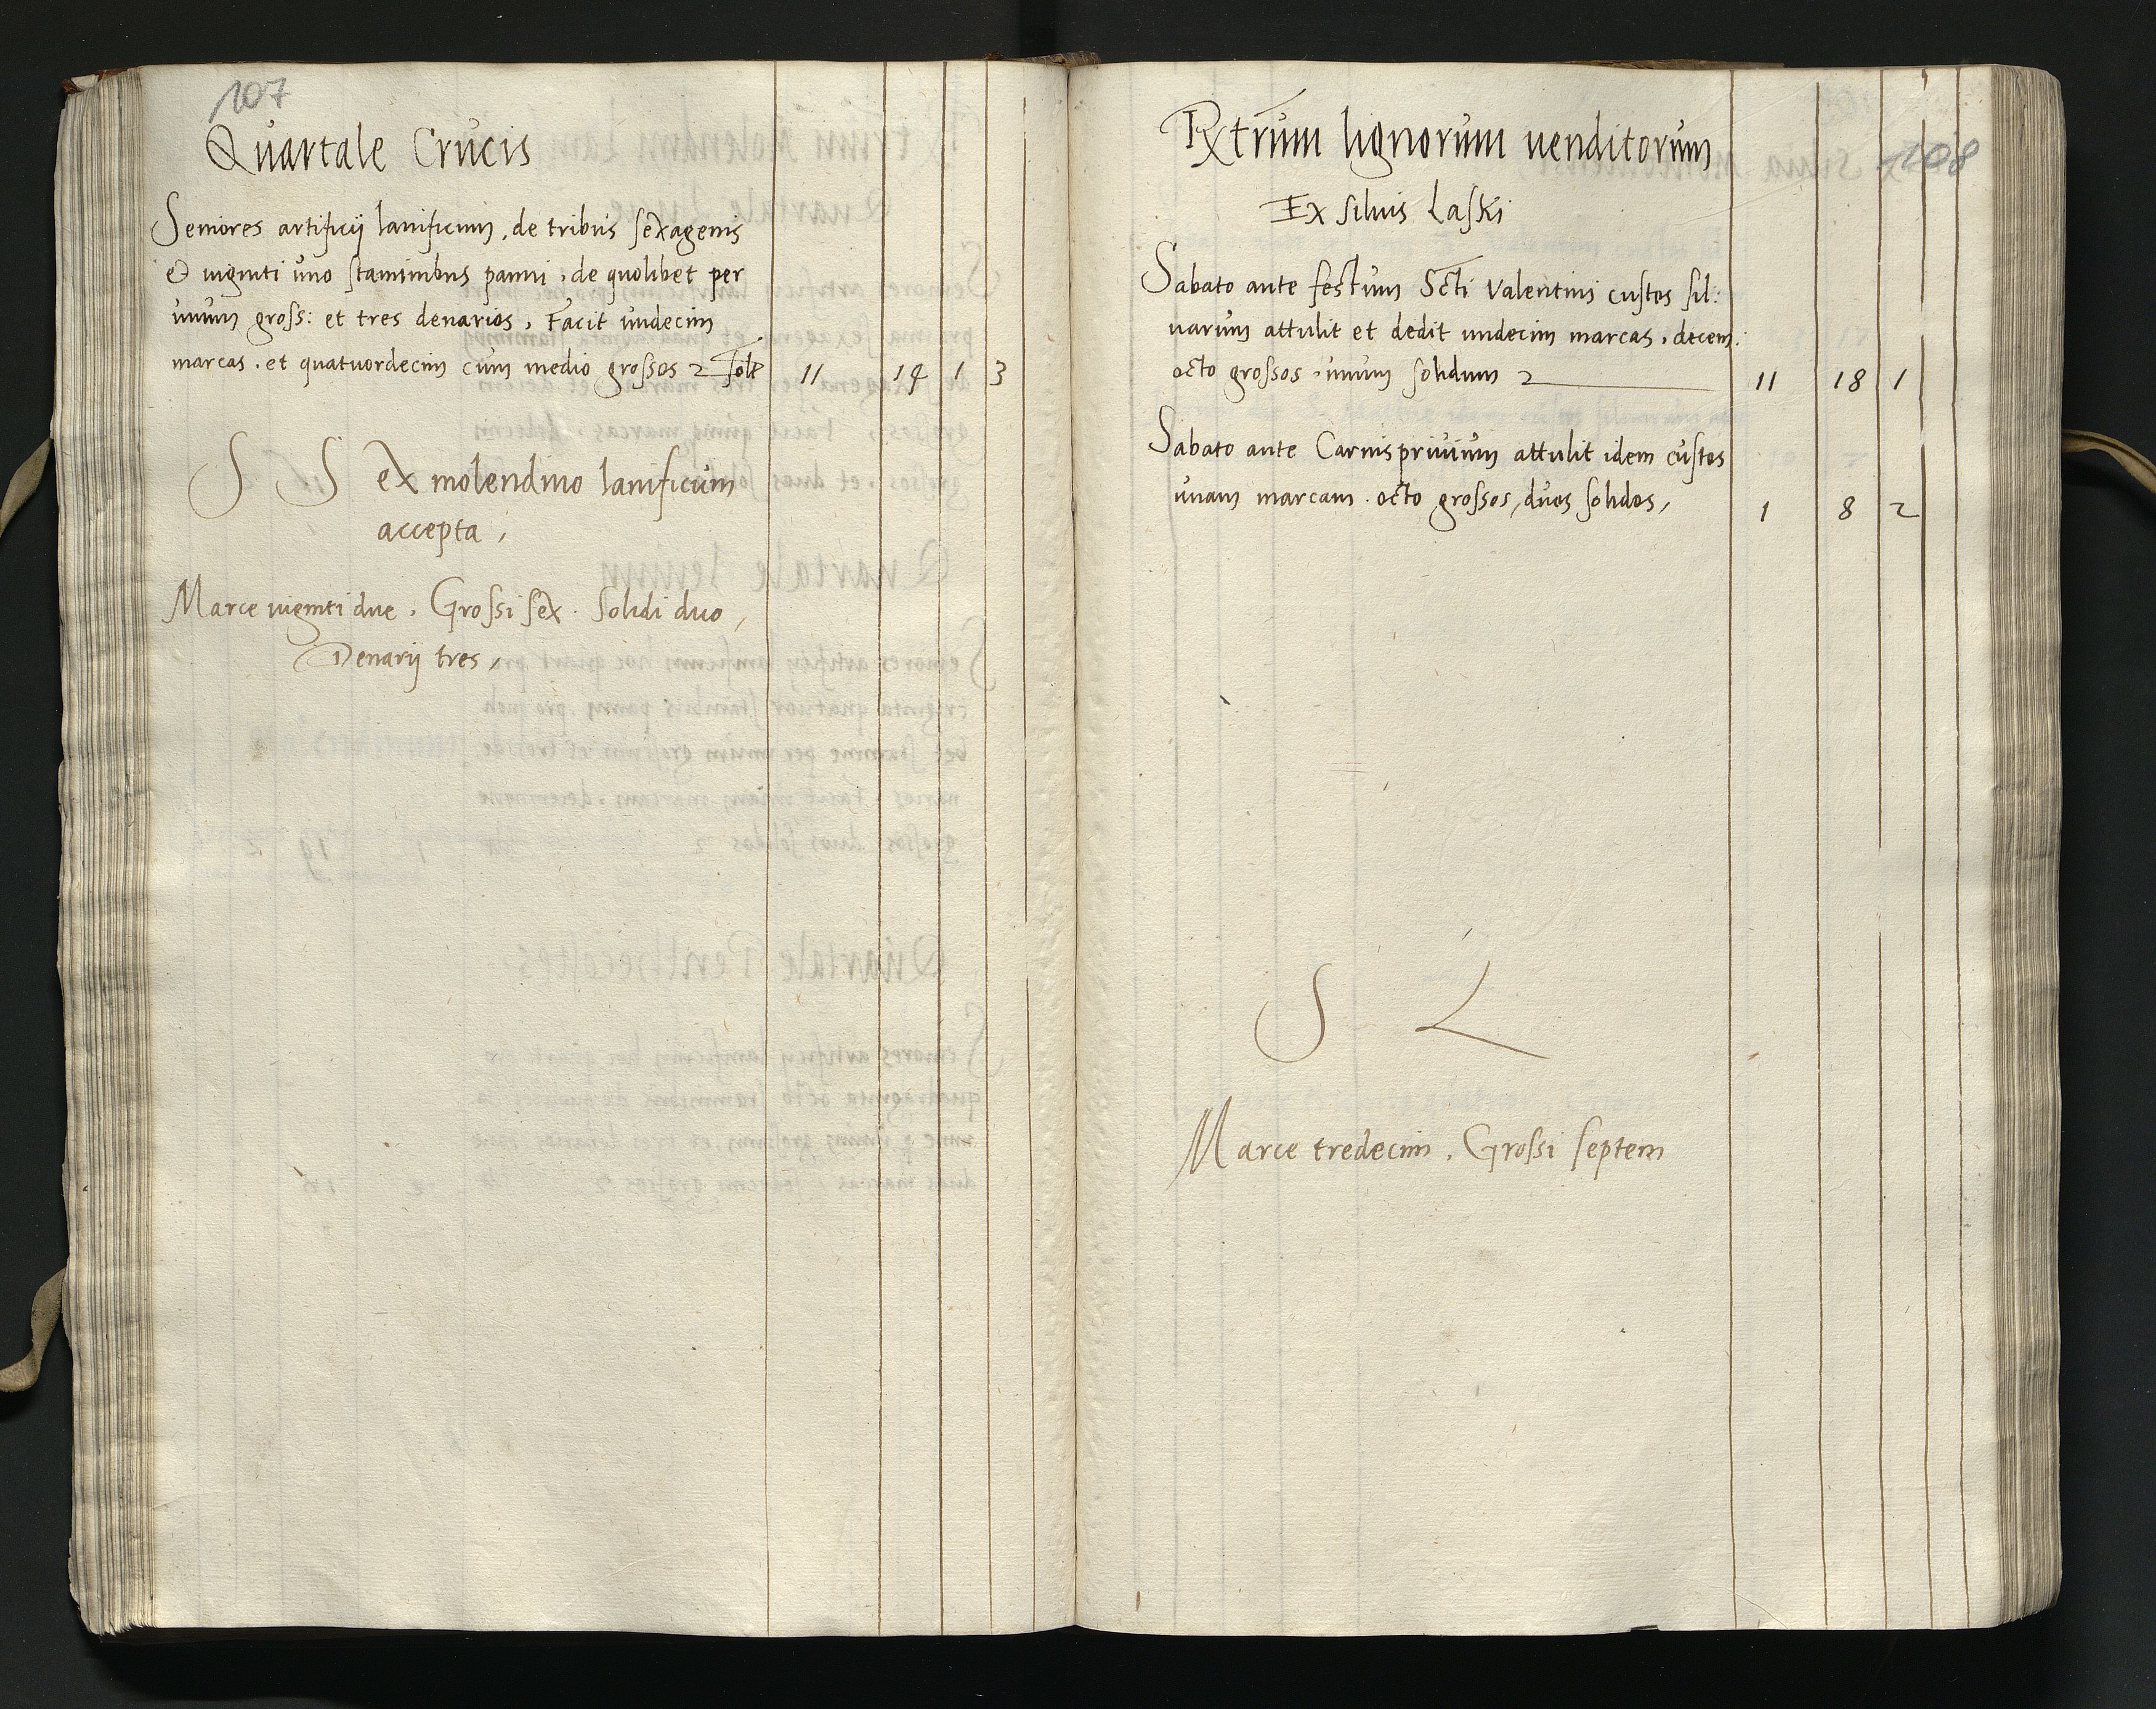 107
Quartale Crucis
Seniores artificij lanificum, de tribus sexagenis
et viginti uno staminibus panni, de quolibet per
unum gross: et tres denarios, Facit undecim
marcas. et quatuordecim cum medio grossos 2 11 14 1 3
S S ex molendino lanificum
accepta,
Marce viginti due. Grossi sex. Solidi duo,
Denarij tres,
108
Rxtrum lignorum venditorum
Ex silvis Laski
Sabato ante festum Scti Valentini custos sil:
varum attulit et dedit undecim marcas, decem:
octo grossos, unum solidum 2 11 18 1
Sabato ante Carnisprivium attulit idem custos
unam marcam. octo grossos, duos solidos, 1 8 2
S L
Marce tredecim. Grossi septem